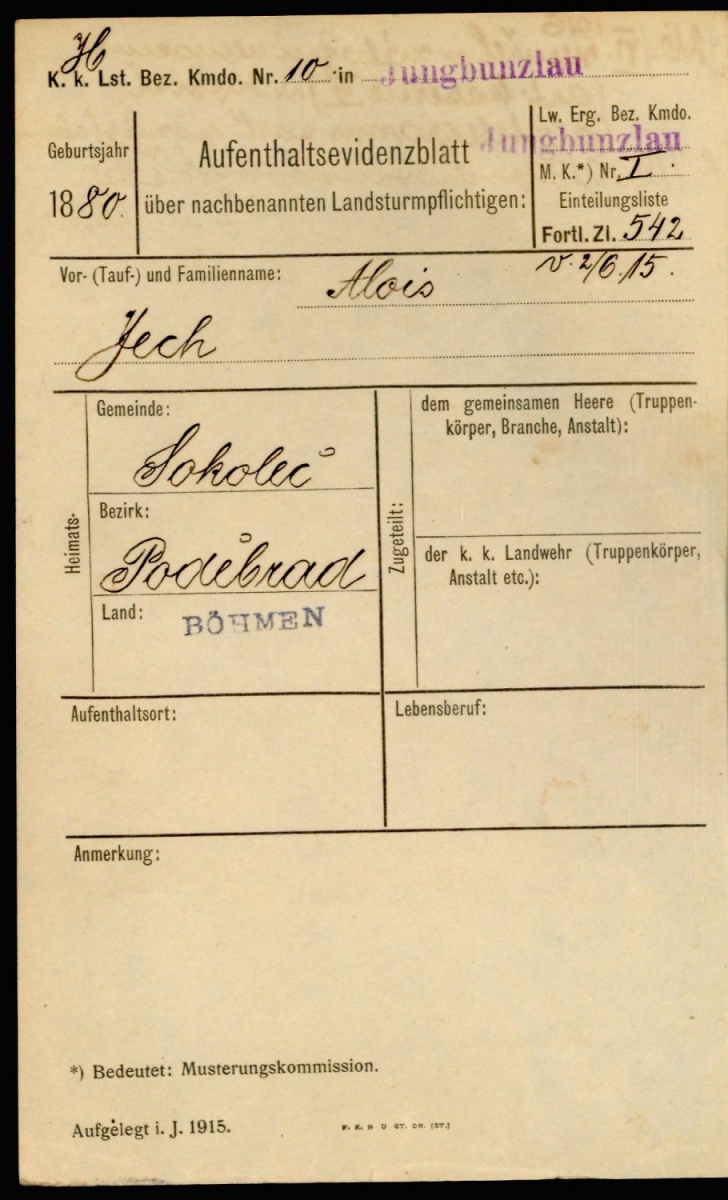 H
K. k. Lst. Bez. Kmdo. Nr. 10 in Jungbunzlau
Geburtsjahr
1880.
Aufenthaltsevidenzblatt
über nachbenannten Landsturmpflichtigen:
Lw. Erg. Bez. Kmdo.
Jungbunzlau
M. K.*) Nr. I.
Einteilungsliste
Fortl. Zl. 542
v. 2/6.15.
Vor- (Tauf-) und Familienname: Alois
Jech
Heimats-
Gemeinde:
Sokoleč
Bezirk:
Poděbrad
Land: BÖHMEN
Zugeteilt:
dem gemeinsamen Heere (Truppen-
körper, Branche, Anstalt):
der k. k. Landwehr (Truppenkörper,
Anstalt etc.):
Aufenthaltsort:
Lebensberuf:
Anmerkung:
*) Bedeutet: Musterungskommission.
Aufgelegt i. J. 1915.
K. K. H U ST. DR. (ST.)